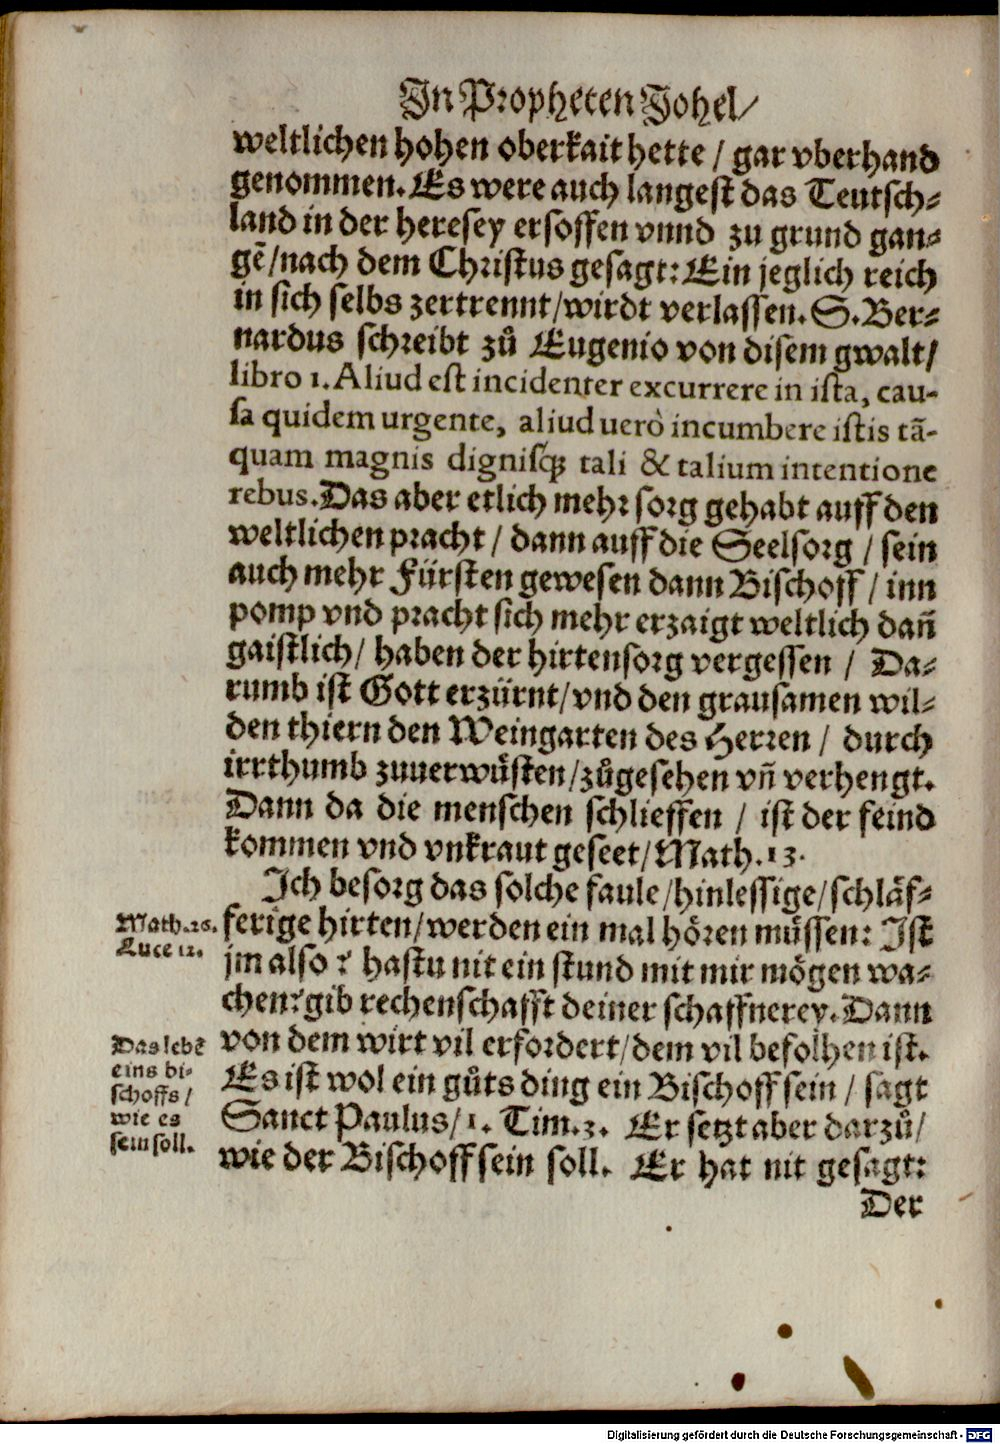 In Propheten Johel/
weltlichen hohen oberkait hette / gar vberhand
genommen. Es were auch langest das Teutsch-
land in der heresey ersoffen vnnd zu grund gan-
gē/nach dem Christus gesagt: Ein jeglich reich
in sich selbs zertrennt/wirdt verlassen. S. Ber-
nardus schreibt zů Eugenio von disem gwalt/
libro 1. Aliud est incidenter excurrere in ista, cau-
sa quidem urgente, aliud uerò incumbere istis tã-
quam magnis dignisq́; tali & talium intentione
rebus. Das aber etlich mehr sorg gehabt auff den
weltlichen pracht / dann auff die Seelsorg / sein
auch mehr Fürsten gewesen dann Bischoff / inn
pomp vnd pracht sich mehr erzaigt weltlich dañ
gaistlich/ haben der hirtensorg vergessen / Da-
rumb ist Gott erzürnt/vnd den grausamen wil-
den thiern den Weingarten des Herren / durch
irrthumb zuuerwüsten/zůgesehen vñ verhengt.
Dann da die menschen schlieffen / ist der feind
kommen vnd vnkraut geseet/Math. 13.
Ich besorg das solche faule/hinlessige/schläf-
ferige hirten/werden ein mal hören müssen: Ist
jm also? hastu nit ein stund mit mir mögen wa-
chen? gib rechenschafft deiner schaffnerey. Dann
von dem wirt vil erfordert/dem vil befolhen ist.
Es ist wol ein gůts ding ein Bischoff sein / sagt
Sanct Paulus/1. Tim. 3. Er setzt aber darzů/
wie der Bischoff sein soll. Er hat nit gesagt:
Der
Math. 26.
Luce 12.
Das lebē
eins bi-
schoffs/
wie es
sein soll.
Digitalisierung gefördert durch die Deutsche Forschungsgemeinschaft - DFG